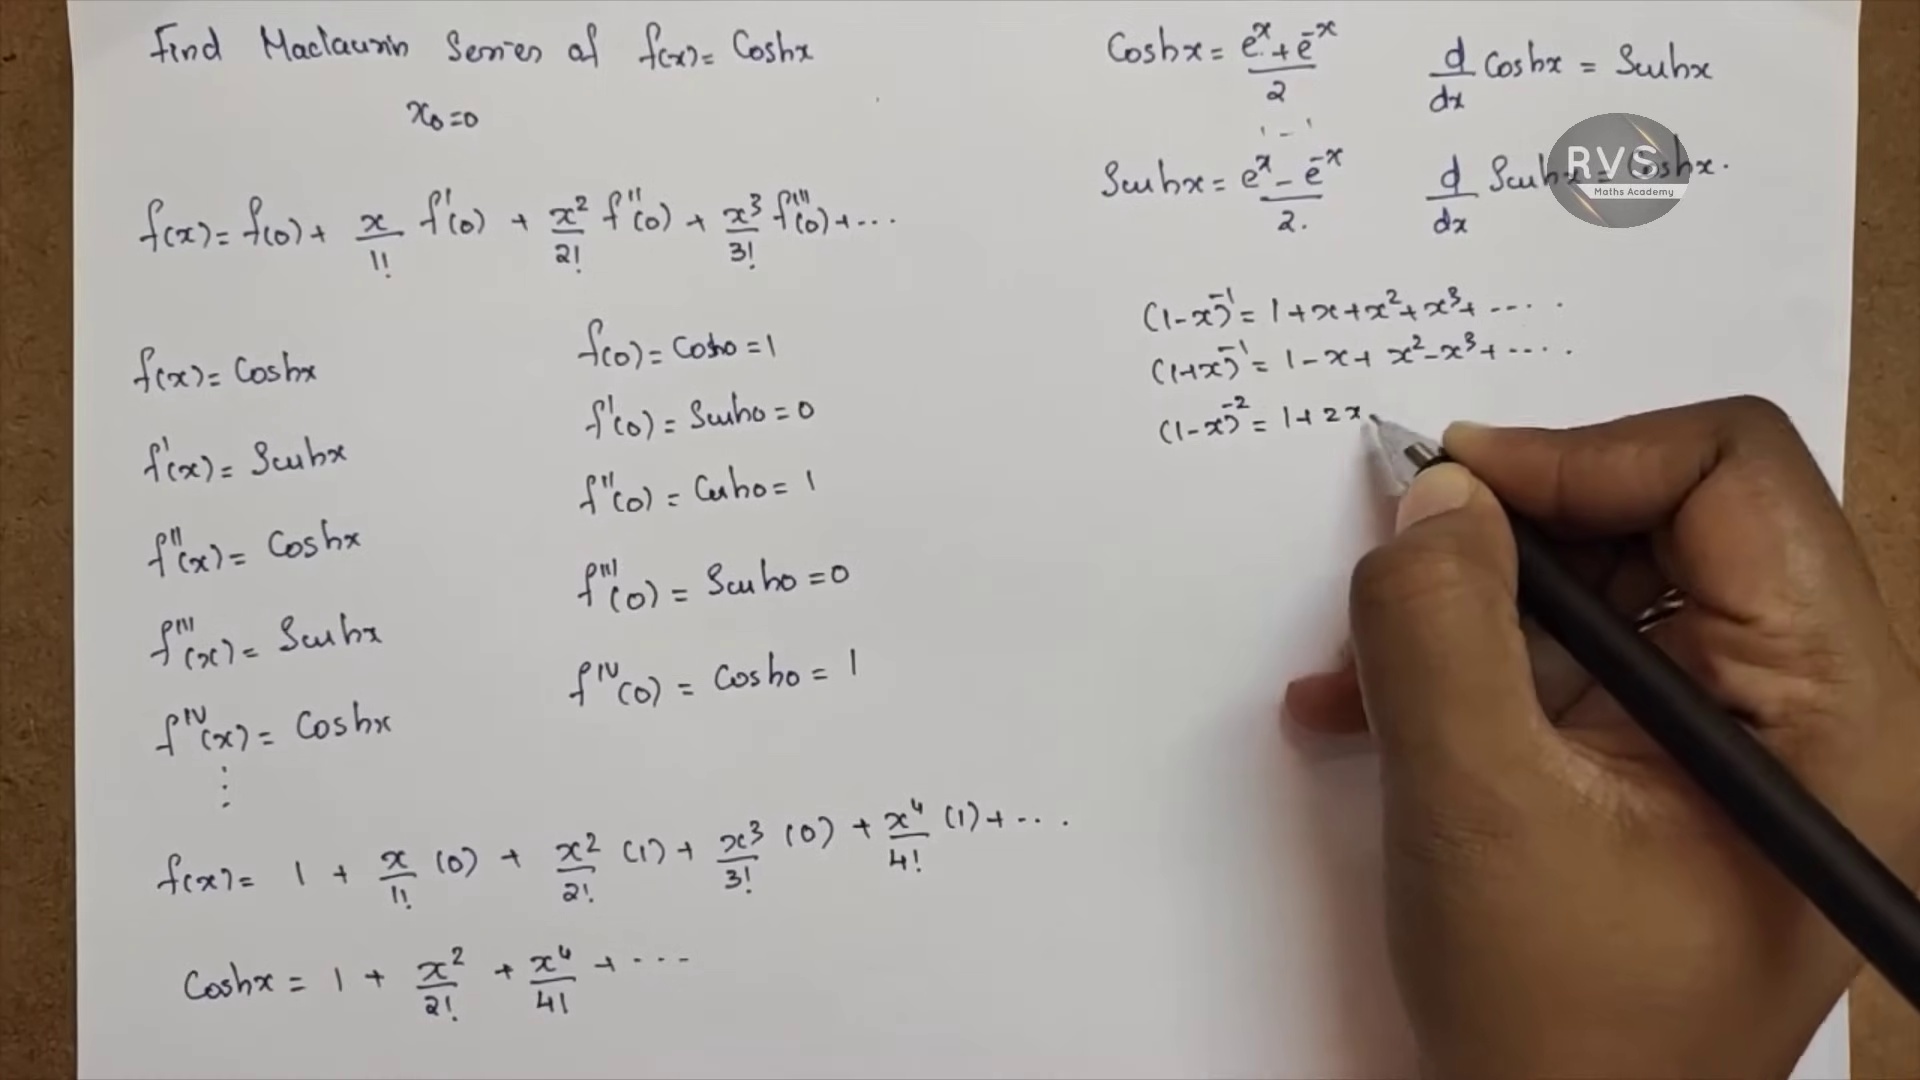 Find Maclaurin Series of f(x) = Coshx
x₀=0
f(x) = f(0) + x/1! f'(0) + x²/2! f''(0) + x³/3! f'''(0) + ...
f(x) = Coshx
f(0) = Cosh0 = 1
f'(x) = Sinhx
f'(0) = Sinh0 = 0
f''(x) = Coshx
f''(0) = Cosh0 = 1
f'''(x) = Sinhx
f'''(0) = Sinh0 = 0
f^IV(x) = Coshx
f^IV(0) = Cosh0 = 1
⋮
f(x) = 1 + x/1! (0) + x²/2! (1) + x³/3! (0) + x⁴/4! (1) + ...
Coshx = 1 + x²/2! + x⁴/4! + ...
Coshx = (e^x + e^-x)/2
d/dx Coshx = Sinhx
Sinhx = (e^x - e^-x)/2.
d/dx Sinhx = Coshx.
RVS
Maths Academy
(1-x)^-1 = 1 + x + x² + x³ + ....
(1+x)^-1 = 1 - x + x² - x³ + ....
(1-x)^-2 = 1 + 2x